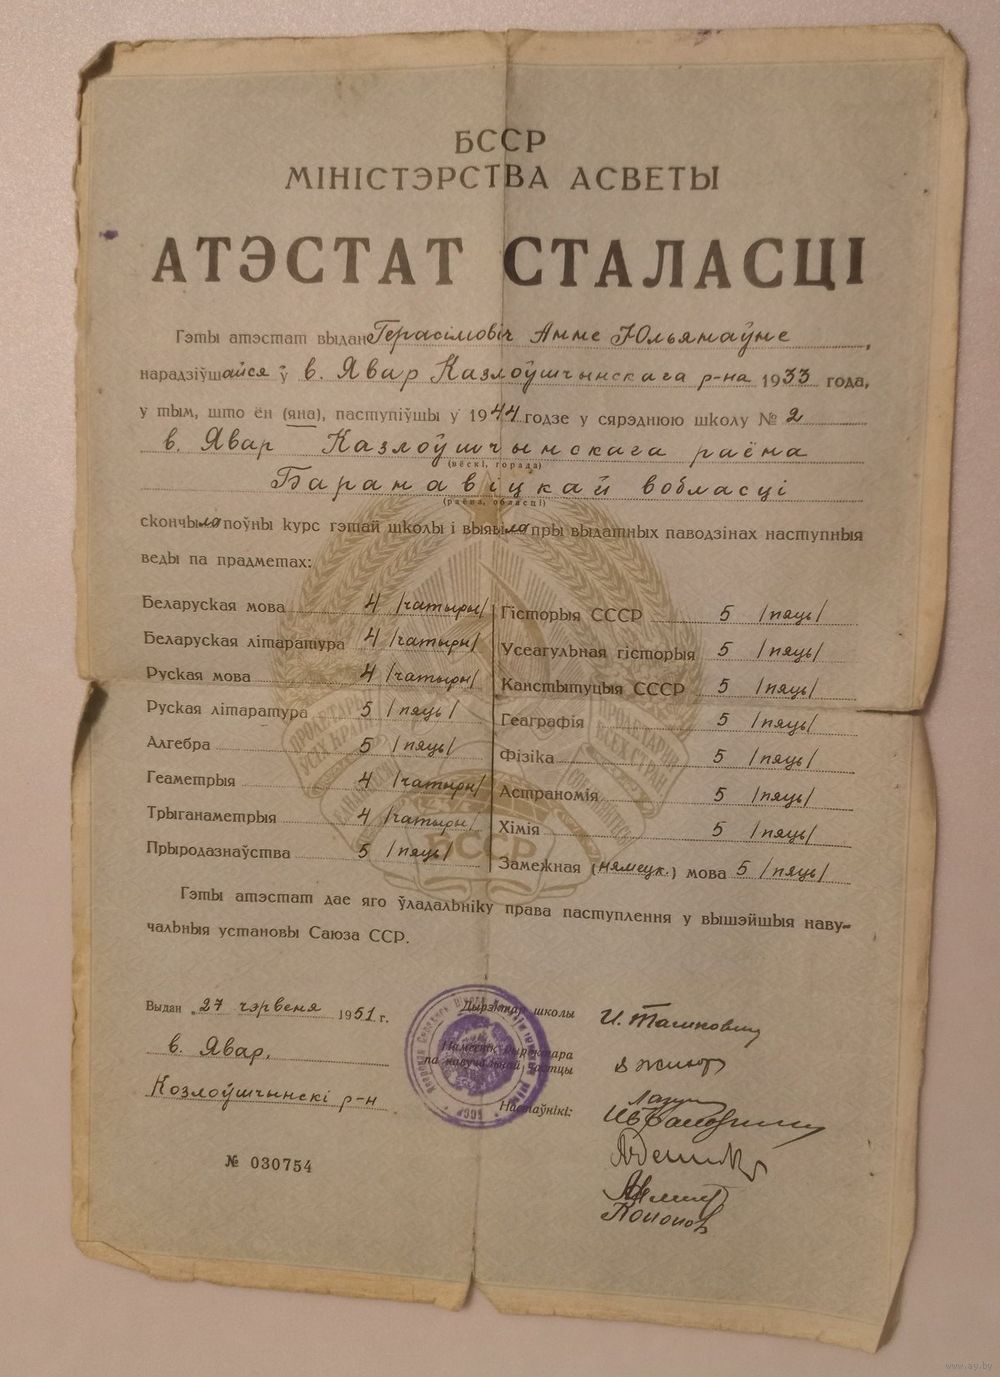 БССР
МІНІСТЭРСТВА АСВЕТЫ
АТЭСТАТ СТАЛАСЦІ
Гэты атэстат выдан Герасімовіч Анне Юльянаўне,
нарадзіўшайся ў в. Явар Казлоўшчынскага р-на 1933 года,
у тым, што ён (яна), паступіўшы ў 1944 годзе у сярэднюю школу № 2
в. Явар Казлоўшчынскага раёна
(вёскі, горада)
Баранавіцкай вобласці
(раёна, обласці)
скончыла поўны курс гэтай школы і выявіла пры выдатных паводзінах наступныя
веды па прадметах:
Беларуская мова 4 /чатыры/
Беларуская літаратура 4 /чатыры/
Руская мова 4 /чатыры/
Руская літаратура 5 /пяць/
Алгебра 5 /пяць/
Геаметрыя 4 /чатыры/
Трыганаметрыя 4 /чатыры/
Прыродазнаўства 5 /пяць/
Гісторыя СССР 5 /пяць/
Усеагульная гісторыя 5 /пяць/
Канстытуцыя СССР 5 /пяць/
Геаграфія 5 /пяць/
Фізіка 5 /пяць/
Астраномія 5 /пяць/
Хімія 5 /пяць/
Замежная (нямецк.) мова 5 /пяць/
БССР
Гэты атэстат дае яго ўладальніку права паступлення у вышэйшыя наву-
чальныя установы Саюза ССР.
Выдан „27 чэрвеня 1951 г.
в. Явар,
Козлоўшчынскі р-н
№ 030754
Дырэктар школы
Намеснік дырэктара
па навучальнай частцы
Настаўнікі:
Кононов
www.ay.by